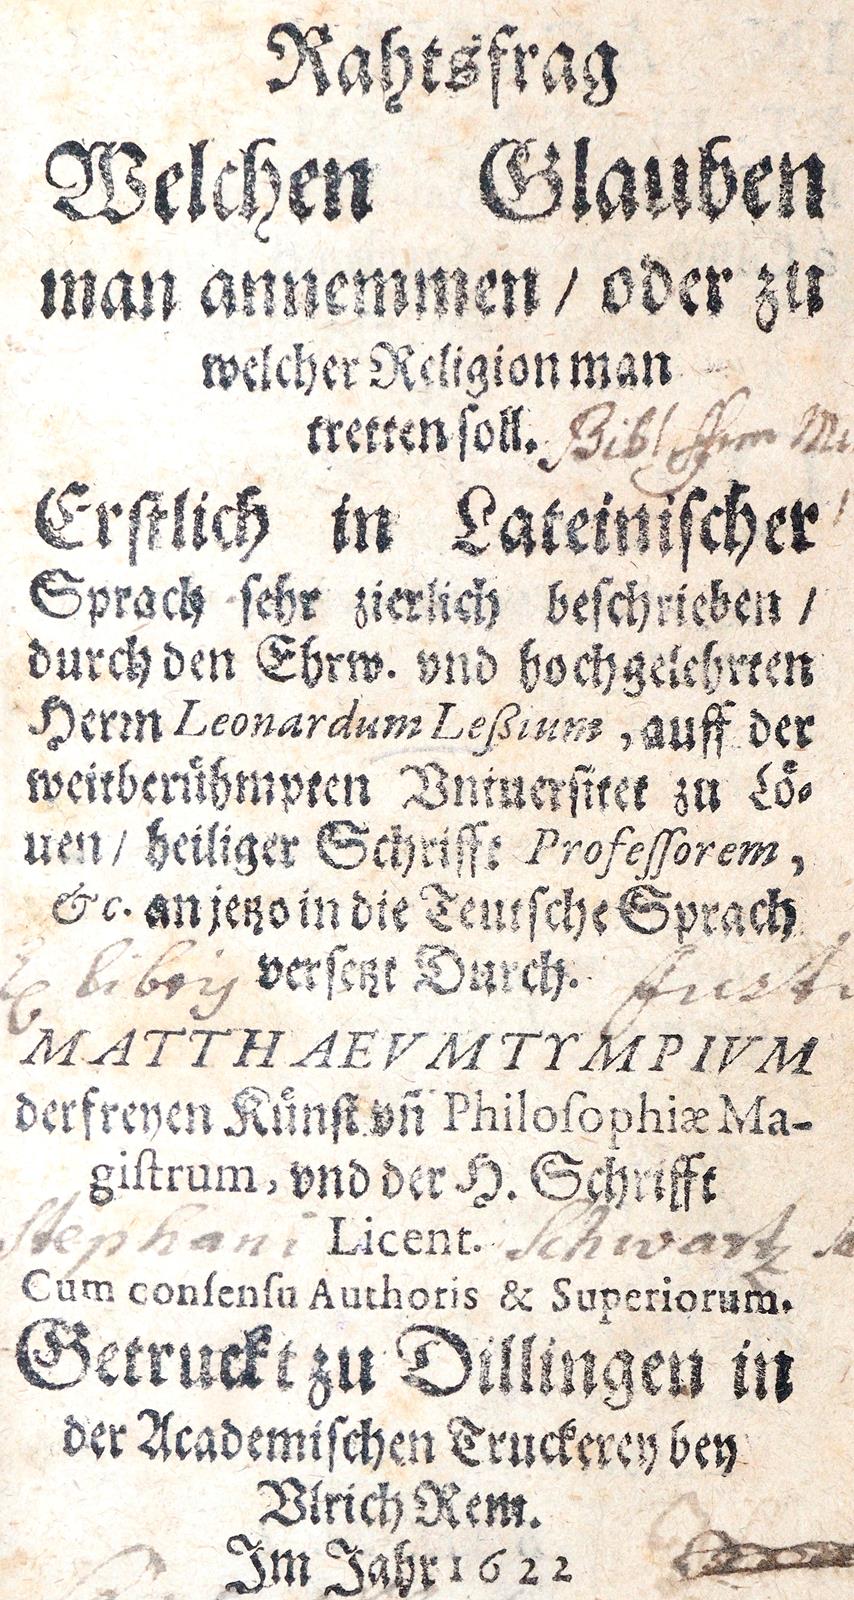 Rahtsfrag
Welchen Glauben
man annemmen / oder zu
welcher Religion man
tretten soll. Bibl
Erstlich in Lateinischer
Sprach sehr zierlich beschrieben /
durch den Ehrw. vnd hochgelehrten
Herrn Leonardum Leßium, auff der
weitberühmpten Vniuersitet zu Lö-
uen / heiliger Schrifft Professorem,
&c. an jetzo in die Teutsche Sprach
Ex libris versetzt Durch.
MATTHAEVM TYMPIVM
der freyen Künst vñ Philosophiæ Ma-
gistrum, vnd der H. Schrifft
Stephani Licent. Schwartz
Cum consensu Authoris & Superiorum.
Getruckt zu Dillingen in
der Academischen Truckerey bey
Vlrich Rem.
Im Jahr 1622